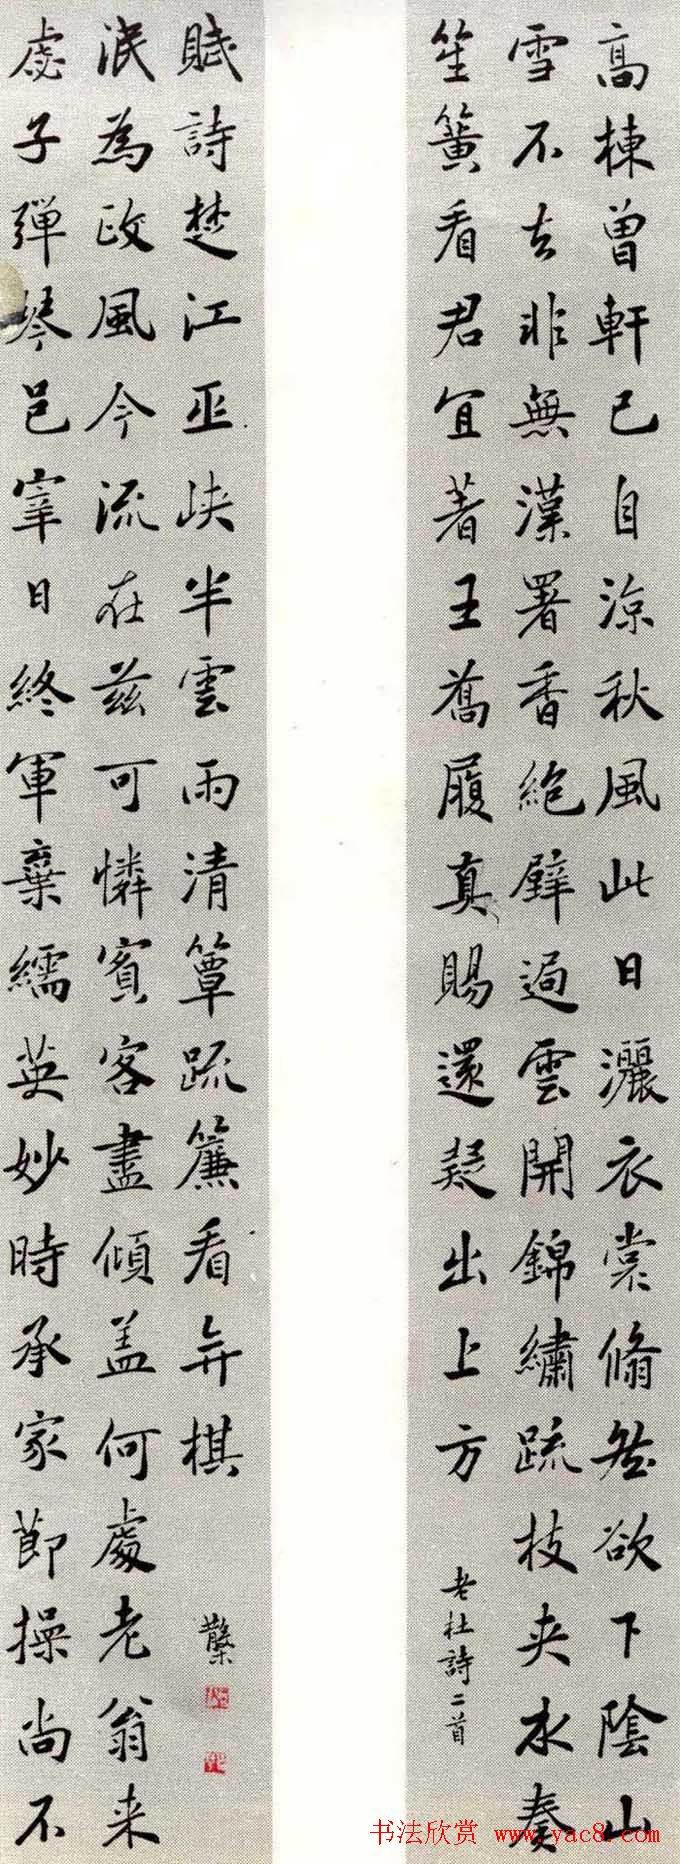 高棟曾軒已自涼秋風此日灑衣裳翛然欲下陰山
雪不去非無漢署香絕壁過雲開錦繡疏枝夾水奏
笙簧看君宜著王喬履真賜還疑出上方
老杜詩二首
虙子彈琴邑宰日終軍棄繻英妙時承家節操尚不
泯為政風今流在茲可憐賓客盡傾盖何處老翁来
賦詩楚江巫峽半雲雨清簟疏簾看弈棋
书法欣赏 www.yac8.com